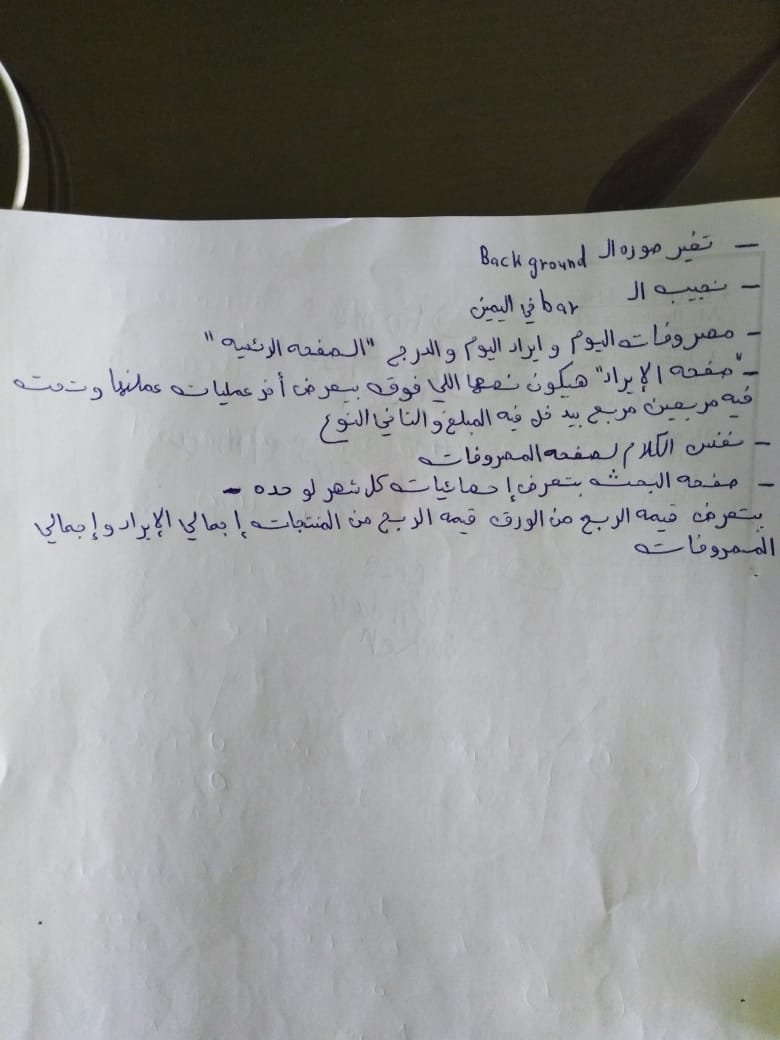 - تغير صوره ال Background
- نجيب ال bar في اليمين
- مصروفات اليوم و ايراد اليوم والدرج "الصفحه الرئسيه"
- "صفحه الإيراد" هيكون نصها اللي فوق بيعرض أخر عمليات عملنها وتحت
فيه مربعين مربع بيدخل فيه المبلغ والتاني النوع
- نفس الكلام لصفحه المصروفات
- صفحه البحث بتعرض إحصائيات كل شهر لوحده -
بتعرض قيمه الربح من الورق قيمه الربح من المنتجات إجمالي الإيراد و إجمالي
المصروفات